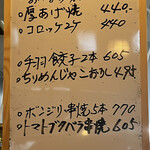 ○厚あげ焼 440-
○コロッケ2ケ 440
○手羽餃子2本 605
○ちりめんじゃこおろし 495
○ボンジリ串焼5本 770.
○トマトブタバラ串焼 605